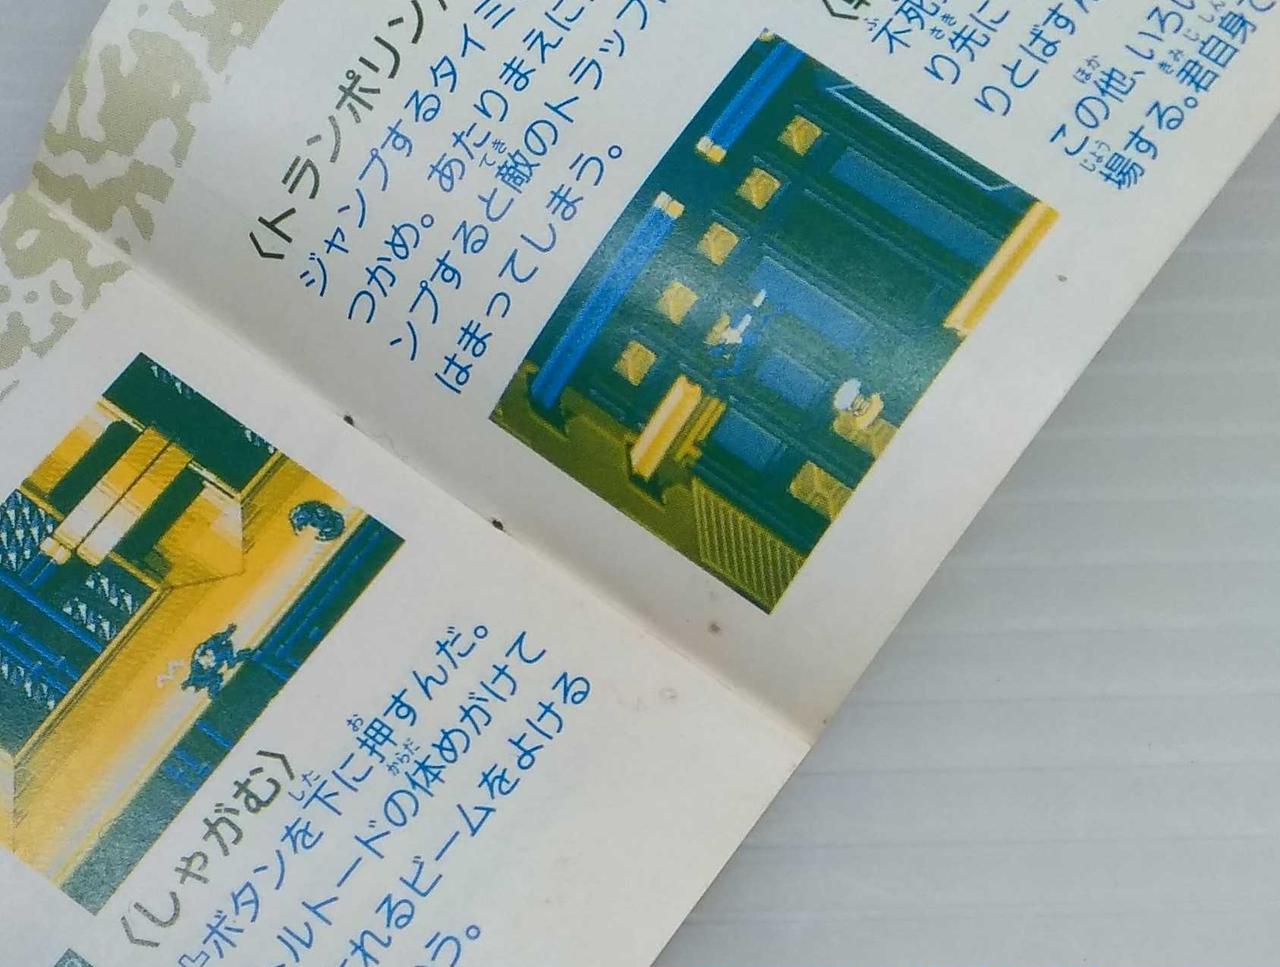 〈トランポリン
ジャンプするタイミ
つかめ。あたりまえに
ンプすると敵のトラップ
はまってしまう。
不死
り先に
りとばす
この他、いろい
場する。君自身で
〈しゃがむ〉
ボタンを下に押すんだ。
ルトードの体めがけて
れるビームをよける
う。